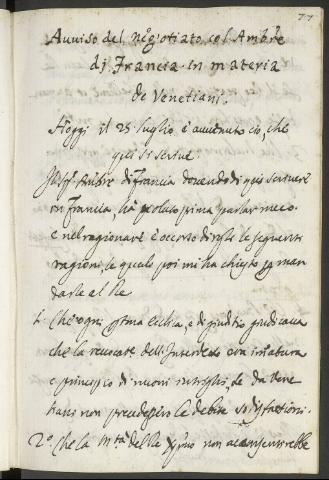 77
Avviso del negotiato col Ambre
di Francia in materia
de Venetiani.
Hoggi il 28 luglio è avvenuto ciò, che
qui si scrive
Il Sr Ambre di Francia dovendo di qui scrivere
in Francia hà voluto prima parlar meco.
e nel ragionare è occorso dirsi le seguenti
ragioni le quali poi mi ha chiesto man
darle al Re
1. Che ogni di giuditio giudicava
che la revocatne dell'Interdetto era
e principio di nuovi intrighi, se da Vene
tiani non prendessero le debite sodisfattioni.
2o. Che la Mtà del Re non acconsentirebbe